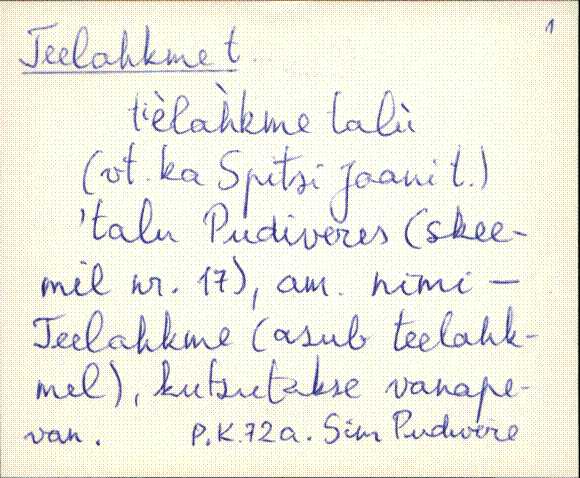 1
Teelahkme t.
tièlàhkme talù
(vt. ka Spitsi Jaani t.)
'talu Pudiveres (skee-
mil nr. 17), am. nimi –
Teelahkme (asub teelahk-
mel), kutsutakse vanape-
van. P.K.72a. Sim Pudivere